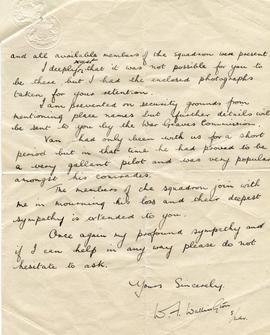 and all available members of the squadron were present
I deeply regret that it was not possible for you to
be there but I had the enclosed photographs
taken for your retention.
I am prevented on security grounds from
mentioning place names but further details will
be sent to you by the War Graves Commission.
Van had only been with us for a short
period but in that time he had proved to be
a very gallant pilot and was very popular
amongst his comrades.
The members of the squadron join with
me in mourning his loss and their deepest
sympathy is extended to you.
Once again my profound sympathy and
if I can help in any way please do not
hesitate to ask.
Yours Sincerely.